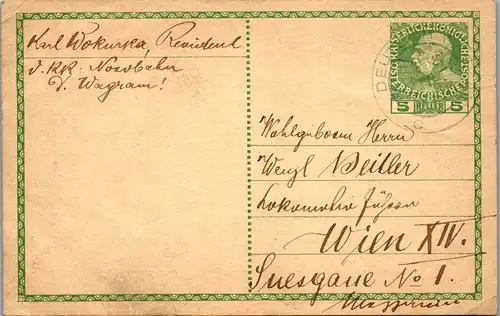 Karl Wokurka, Revident
d. KK: Nordbahn
D. Wagram!
KAISERLICHE KÖNIGLICHE
ÖSTERREICHISCHE
5 HELLER 5
DEUT
Wohlgeboren Herrn
Wenzl
Lokomotiv führer
Wien XIV.
gasse No 1.